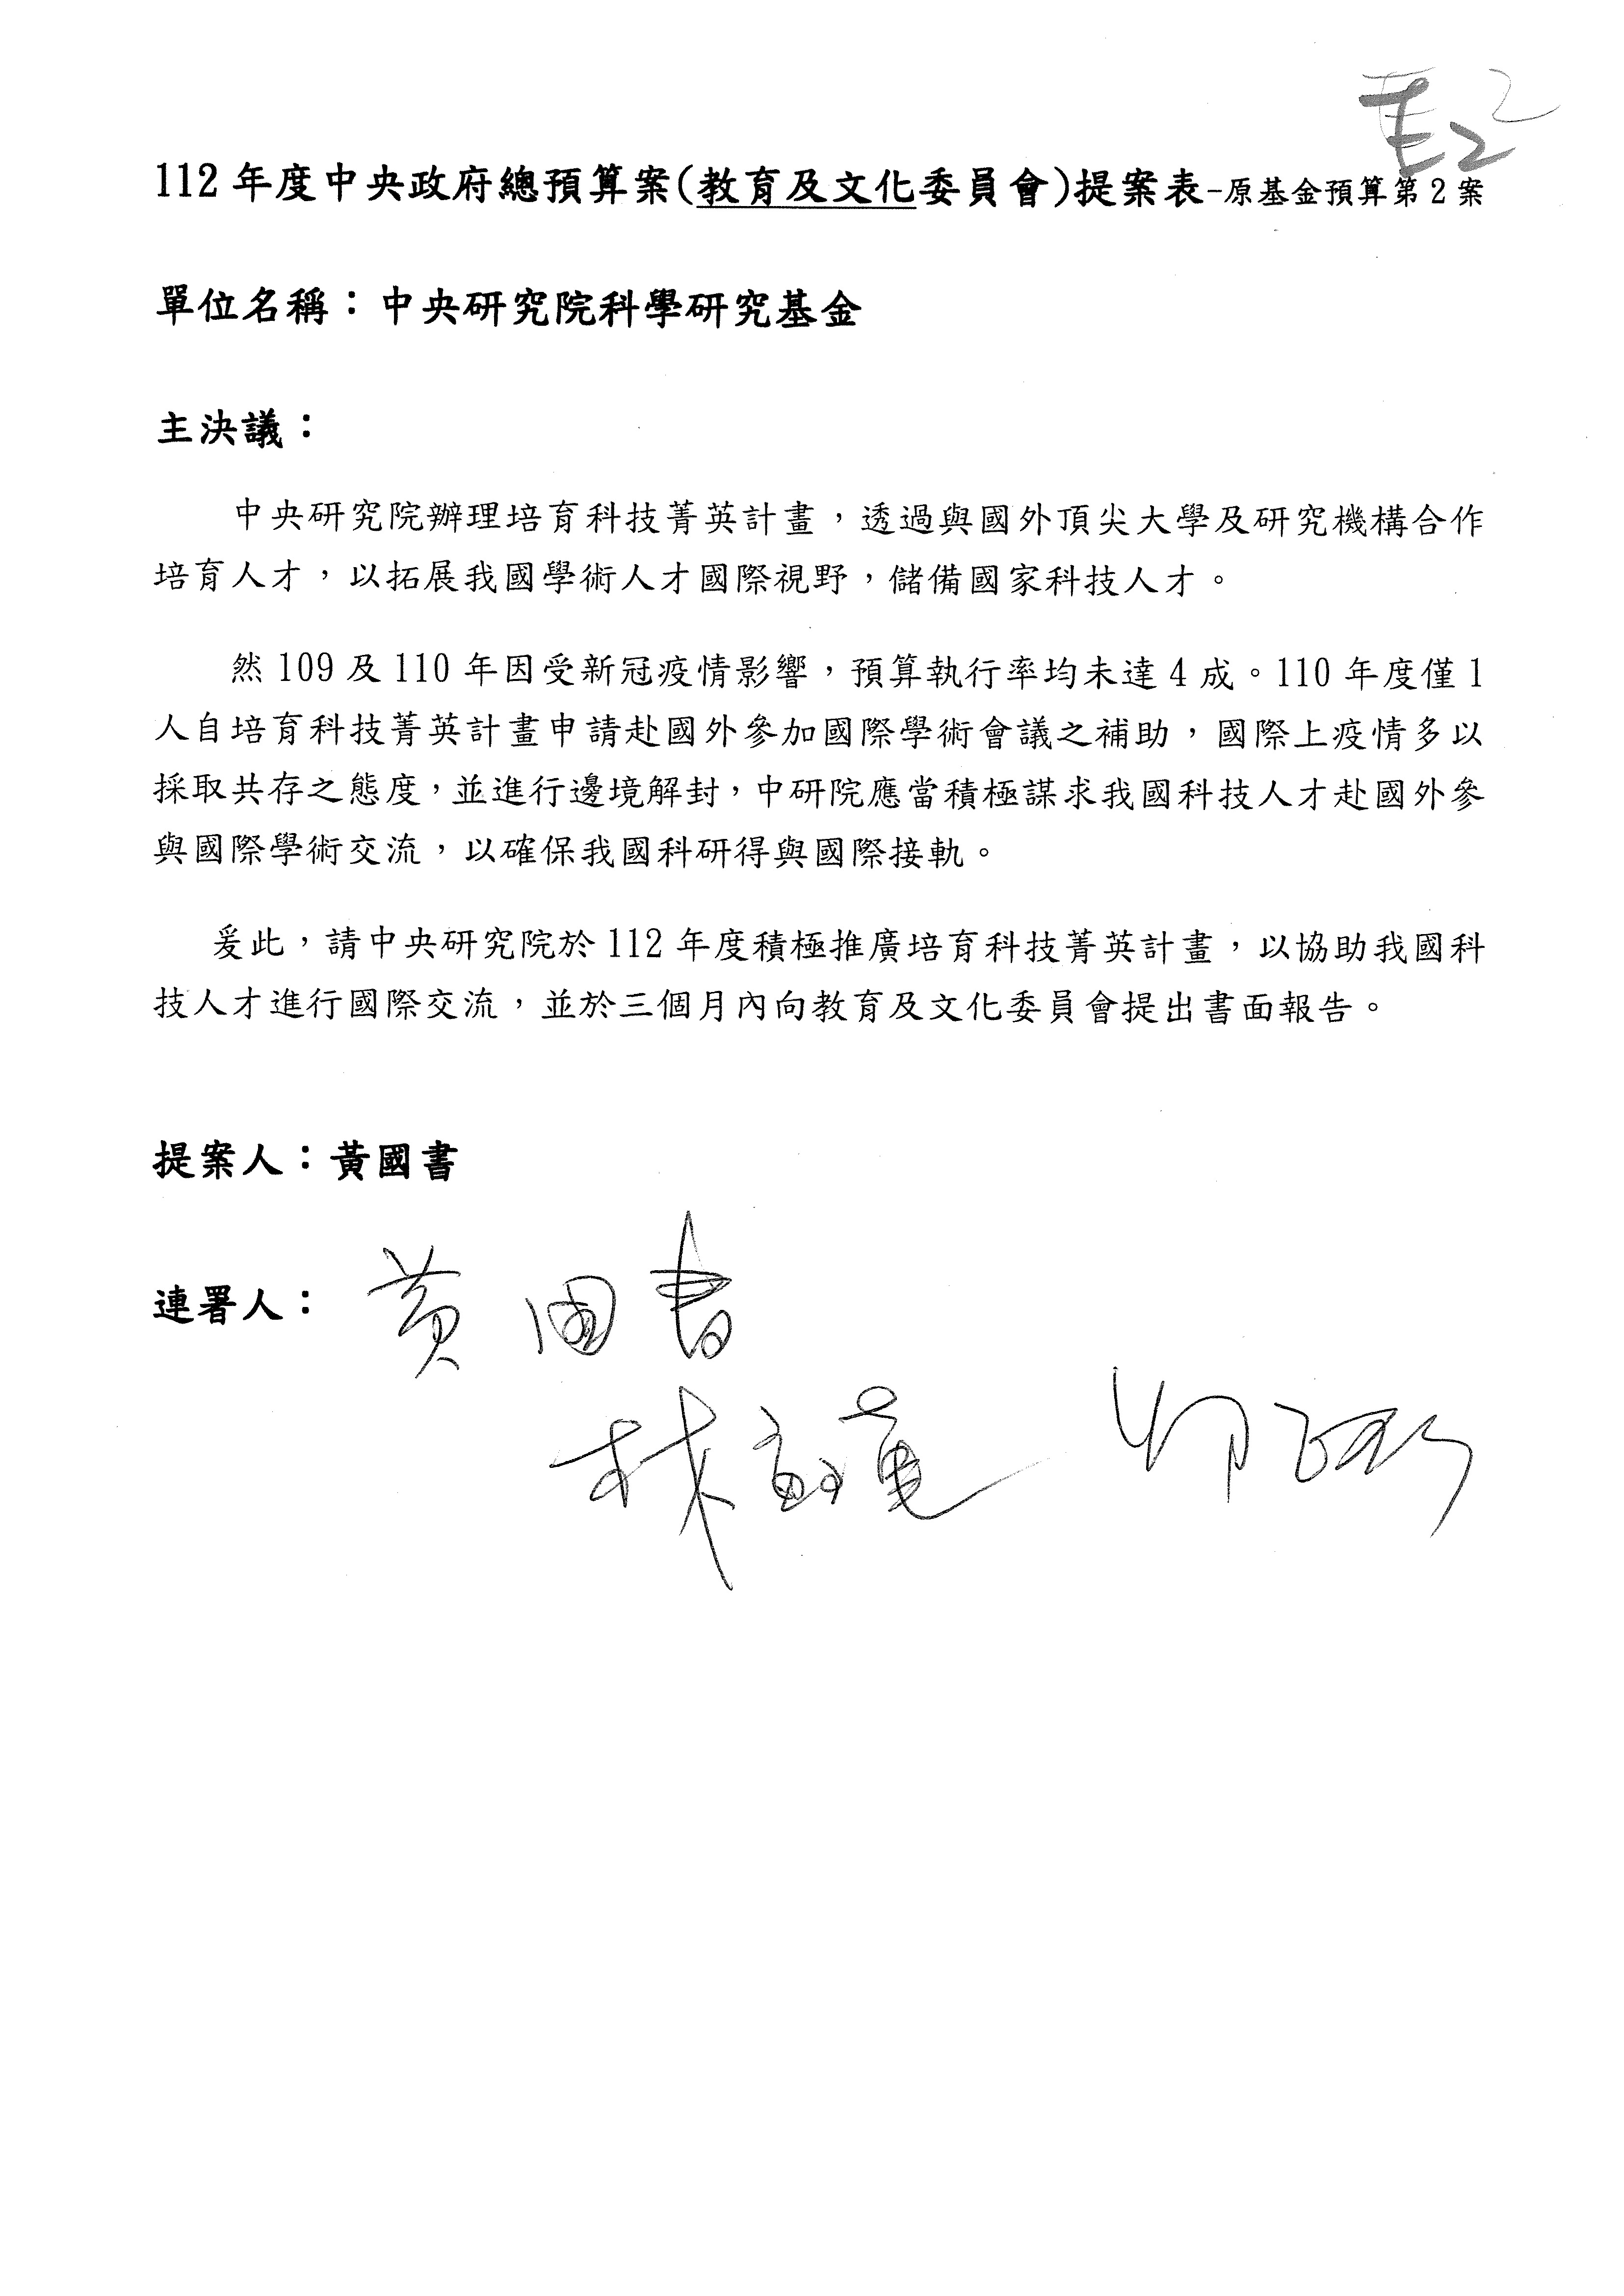 112年度中央政府總預算案(教育及文化委員會)提案表-原基金預算第2案
單位名稱：中央研究院科學研究基金
主決議：
中央研究院辦理培育科技菁英計畫，透過與國外頂尖大學及研究機構合作
培育人才，以拓展我國學術人才國際視野，儲備國家科技人才。
然109及110年因受新冠疫情影響，預算執行率均未達4成。110年度僅1
人自培育科技菁英計畫申請赴國外參加國際學術會議之補助，國際上疫情多以
採取共存之態度，並進行邊境解封，中研院應當積極謀求我國科技人才赴國外參
與國際學術交流，以確保我國科研得與國際接軌。
爰此，請中央研究院於112年度積極推廣培育科技菁英計畫，以協助我國科
技人才進行國際交流，並於三個月內向教育及文化委員會提出書面報告。
提案人：黃國書
連署人：黃國書
林